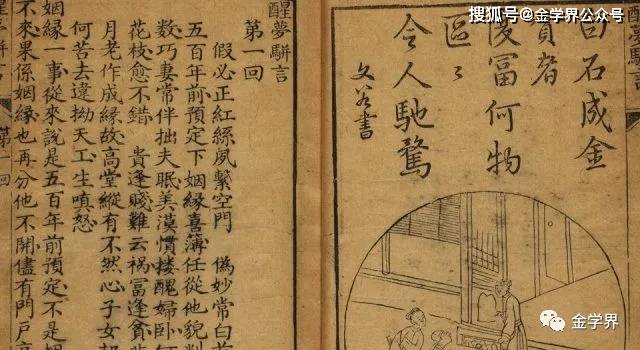 搜狐号@金学界公众号
醒夢駢言
石成金
貧者
富何物
區〻
令人馳騖
書
醒夢駢言
第一回
假必正紅絲夙繫空門 偽妙常白首
五百年前預定下姻緣喜簿任從他貌判
數巧妻常伴拙夫眠美漠慣摟醜婦臥何
花枝愈不錯 貴逢賤難云禍富逢貧非
月老作成緣故高堂縱有不然心子女却
何苦去違拗天工生嗔怒
姻緣一事從來說是五百年前預定不是姻
不來果係姻緣也再分他不開儘有門戶高
醒夢駢言 第一回
金学界